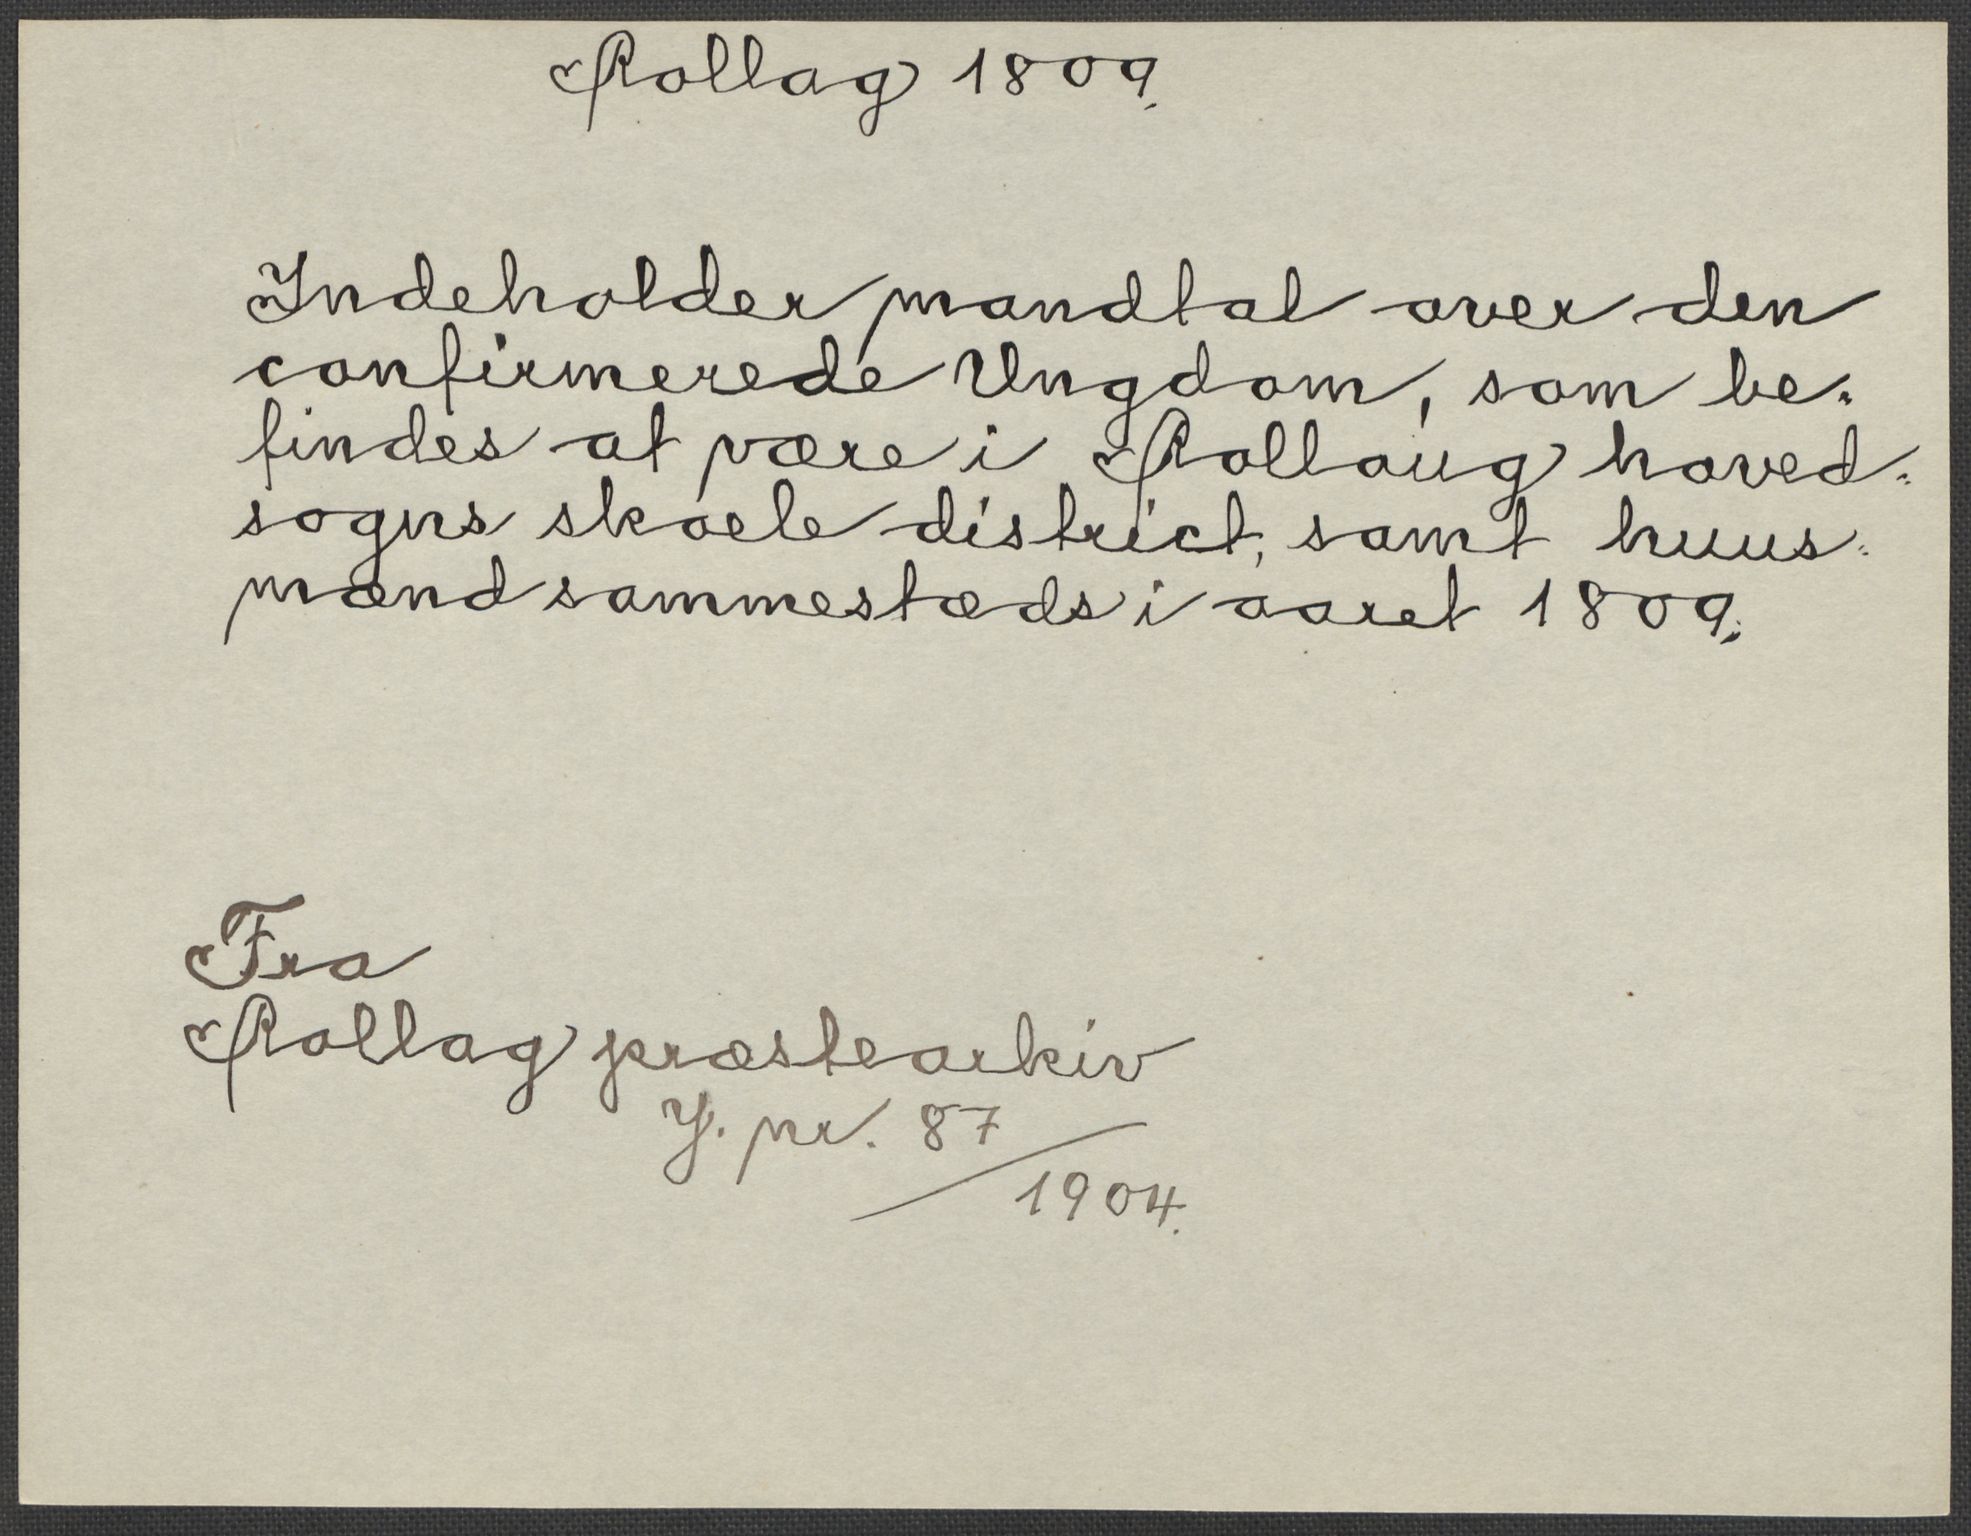 Rollag 1809.
Indeholder mandtal over den
confirmerede Ungdom, som be-
findes at være i Rollaug hoved-
sogns skoele district, samt huus-
mænd sammestæds i aaret 1809.
Fra
Rollag præstearkiv
J. nr. 87/1904.